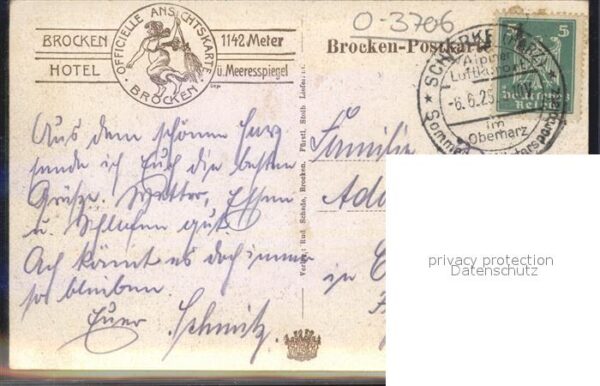 O-3706
BROCKEN
HOTEL
OFFICIELLE ANSICHTSKARTE
BROCKEN
1142 Meter
ü. Meeresspiegel
Brocken-Postkarte
SCHIERKE (HARZ)
Alpiner
Luftkurort
-6.6.25
im
Oberharz
5
Deutsches
Reich
Verlag: Rud. Schade, Brocken. Fürstl. Stolb.
Aus dem schönen Harz
sende ich Euch die besten
Grüsse. Wetter, Essen
u. Schlafen gut.
Ach könnt es doch immer
so bleiben.
Euer Schmitz.
Familie
in
privacy protection
Datenschutz